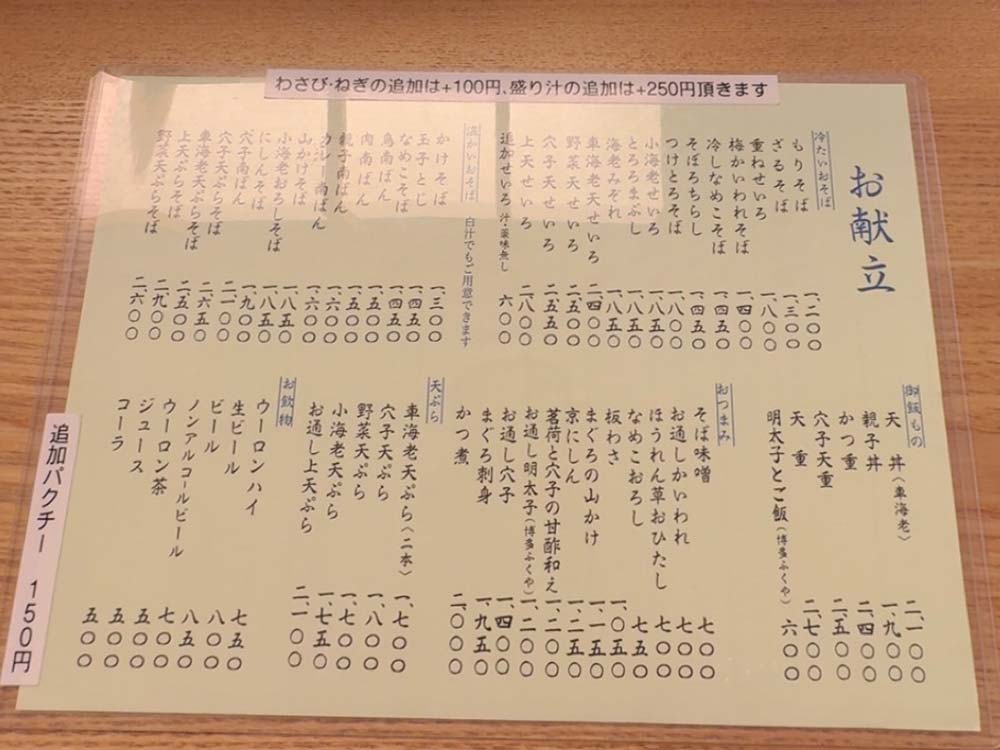 わさび・ねぎの追加は+100円、盛り汁の追加は+250円頂きます
お献立
冷たいおそば
もりそば 一、二〇〇
ざるそば 一、三〇〇
重ねせいろ 一、八〇〇
梅かいわれそば 一、四〇〇
冷しなめこそば 一、四五〇
そぼろちらし 一、四五〇
つけとろそば 一、八〇〇
小海老せいろ 一、八五〇
とろろまぶし 一、八五〇
海老みぞれ 一、八五〇
車海老天せいろ 二、四〇〇
野菜天せいろ 二、五〇〇
穴子天せいろ 二、五五〇
上天せいろ 二、八〇〇
追加せいろ 汁・薬味無し 六〇〇
温かいおそば 白汁でもご用意できます
かけそば 一、三〇〇
玉子とじ 一、四五〇
なめこそば 一、四五〇
鳥南ばん 一、五〇〇
肉南ばん 一、五〇〇
親子南ばん 一、六〇〇
カレー南ばん 一、六〇〇
山かけそば 一、八五〇
小海老おろしそば 一、八五〇
にしんそば 一、九〇〇
穴子南ばん 二、一〇〇
穴子天ぷらそば 二、六五〇
車海老天ぷらそば 二、五〇〇
上天ぷらそば 二、九〇〇
野菜天ぷらそば 二、六〇〇
御飯もの
天丼(車海老) 二、一〇〇
親子丼 一、九〇〇
かつ重 二、四〇〇
穴子天重 二、五〇〇
天重 二、七〇〇
明太子とご飯(博多ふくや) 六〇〇
おつまみ
そば味噌 七〇〇
お通しかいわれ 七〇〇
ほうれん草おひたし 七〇〇
なめこおろし 七五〇
板わさ
まぐろの山かけ 一、一五〇
京にしん 一、二五〇
茗荷と穴子の甘酢和え
お通し明太子(博多ふくや) 一、二〇〇
お通し穴子 一、四〇〇
まぐろ刺身 一、九五〇
かつ煮 二、〇〇〇
天ぷら
車海老天ぷら(二本) 一、七〇〇
穴子天ぷら 一、八〇〇
野菜天ぷら 一、七〇〇
小海老天ぷら 一、七五〇
お通し上天ぷら 二、一〇〇
お飲物
ウーロンハイ 七五〇
生ビール 八〇〇
ビール 八五〇
ノンアルコールビール 七〇〇
ウーロン茶 五〇〇
ジュース 五〇〇
コーラ 五〇〇
追加パクチー 150円